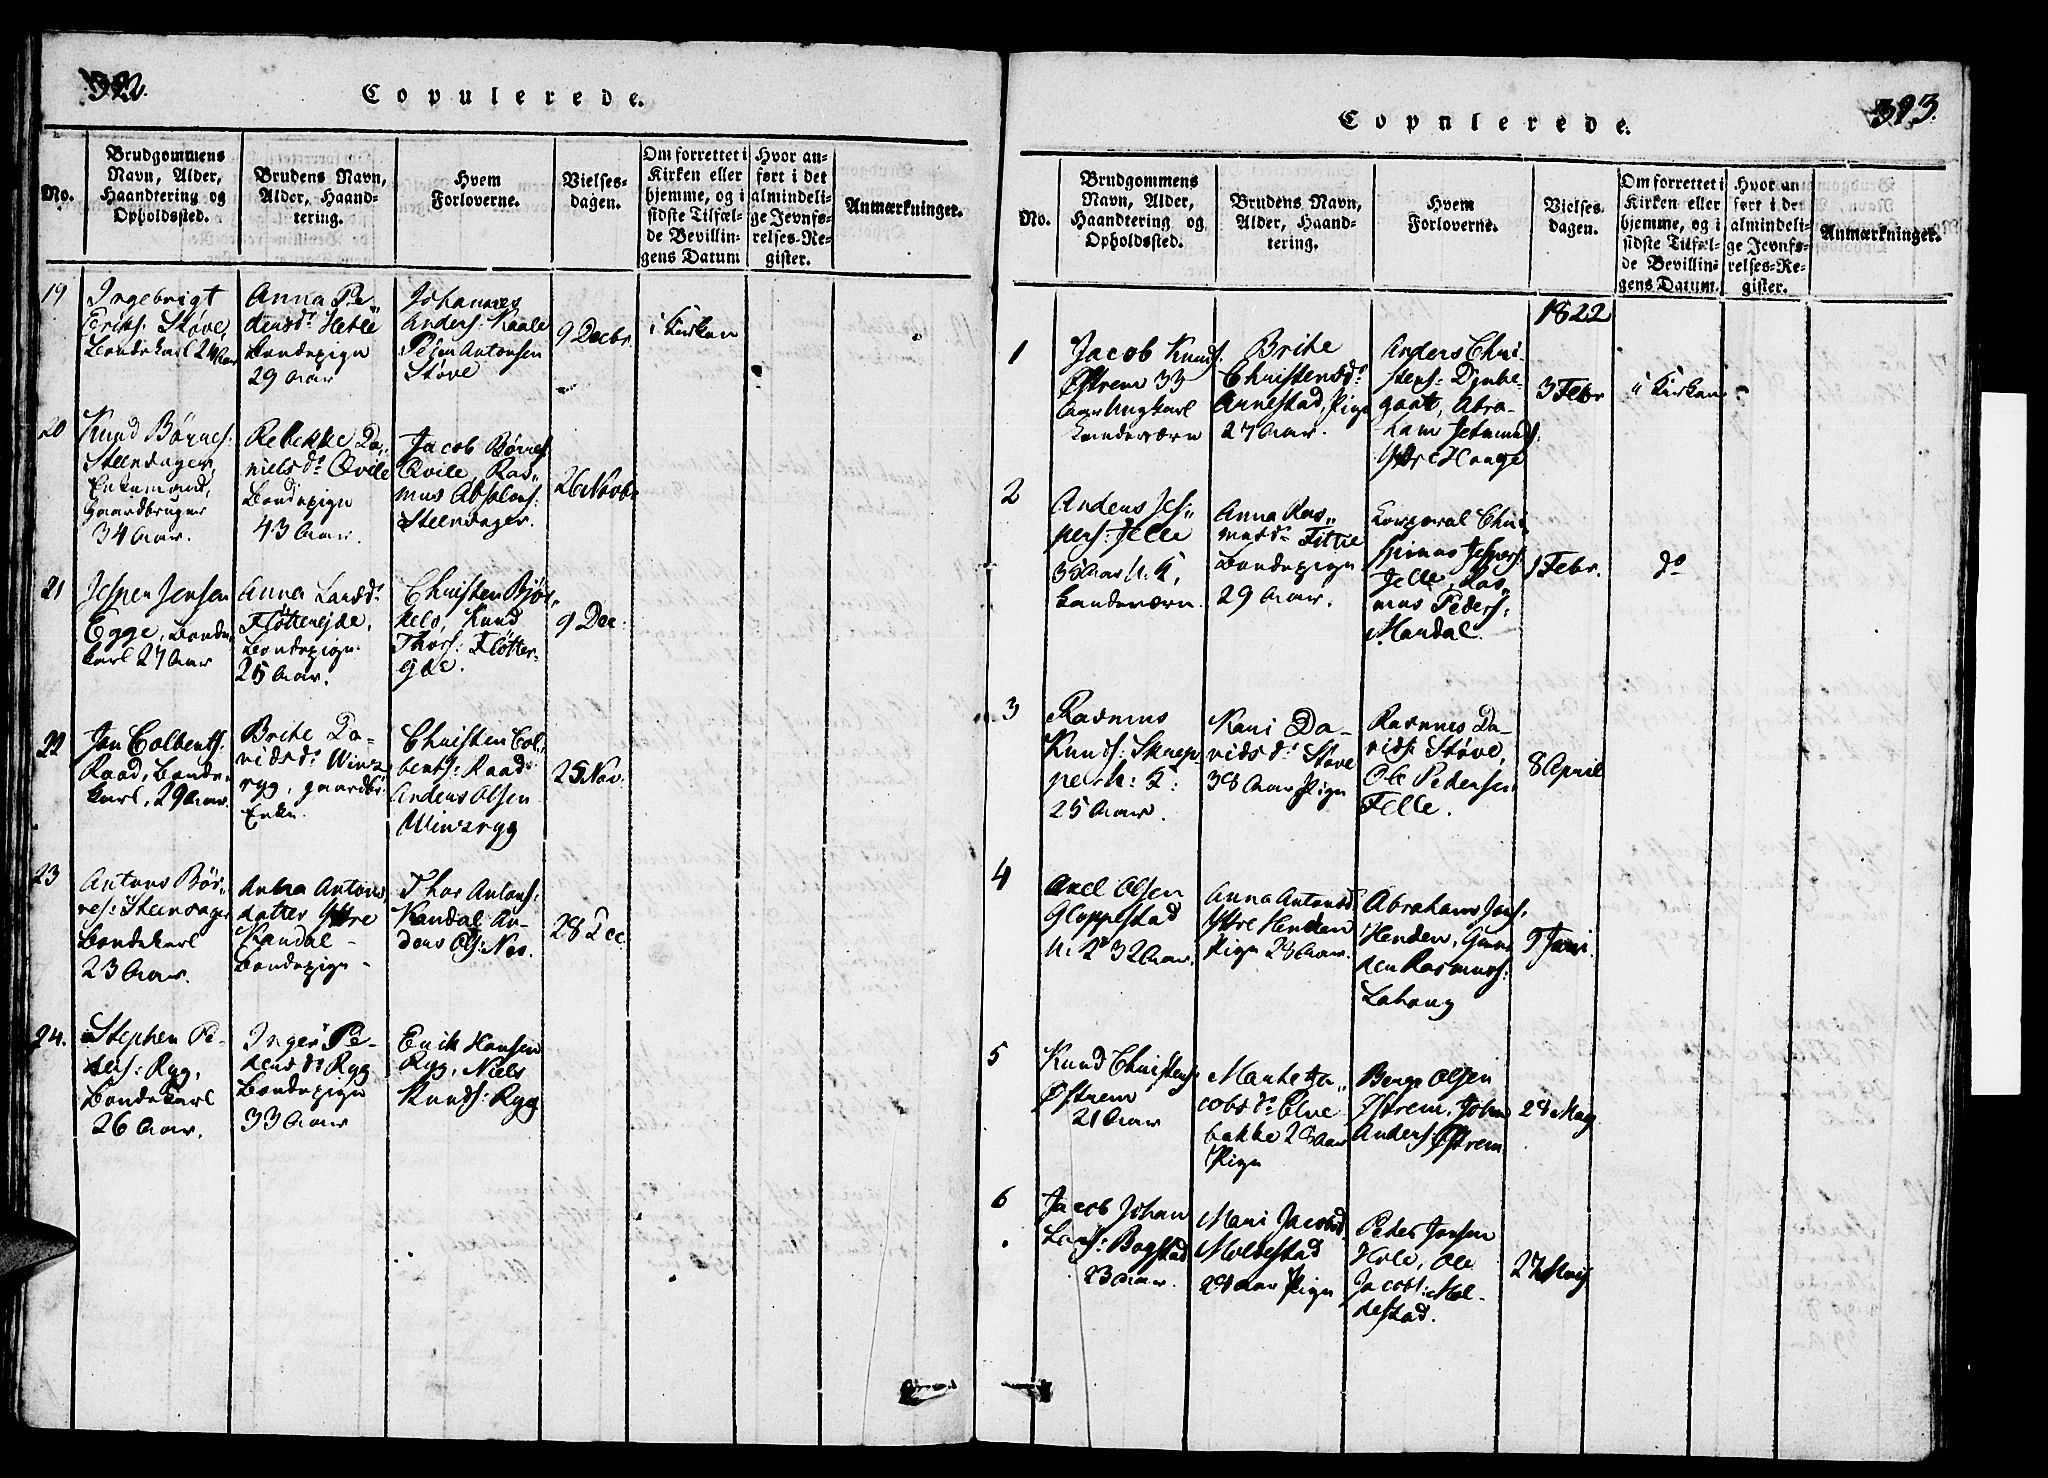 392.
Copulerede.
No.
Brudgommens
Navn, Alder,
Haandtering og
Opholdssted.
Brudens Navn,
Alder, Haand-
tering.
Hvem
Forloverne.
Vielses-
dagen.
Om forrettet i
Kirken eller
hjemme, og i
sidste Tilfæl-
de Bevillin-
gens Datum
Hvor an-
ført i det
almindeli-
ge Jevnfø-
relses-Re-
gister.
Anmærkninger.
19
Ingebrigt
Eriks: Støve
Bondekarl 24 Aar
Anna Pe„
dersd: Hetle
Bondepige
29 Aar
Johannes
Anders: Kaale
Peder Antonsen
Støve
9 Decbr.
i Kirken
20
Knud Børres:
Steensager,
Enkemand,
Gaardbruger
34 Aar.
Rebekke Da„
nielsd: Qvile
Bondepige
43 Aar.
Jacob Børres:
Qvile, Ras„
mus Absalons:
Steensager.
26 Novb:
21
Jesper Jensen
Egge, Bonde„
karl 27 Aar
Anna Larsd:
Fløtterejde,
Bondepige
25 Aar.
Christen Bjør„
kelo, Knud
Thors: Fløtter-
ejde.
9 Dec:
22
Jon Colbents:
Raad, Bonde„
karl, 29 Aar.
Brite Da-
vidsd: Winz
ryg, gaardbr:
Enke.
Christen Col„
bents: Raad
Anders Olsen
Winzryg
25 Nov:
23
Antons Bør„
res: Steensager
Bondekarl
23 Aar.
Anna Antons
datter Ytre
Kandal -
Bondepige -
Thor Antons:
Kandal An-
ders Ols: Nes.
28 Dec:
24.
Stephen Pe-
ders: Ryg,
Bondekarl
26 Aar.
Inger Pe-
dersd: Ryg
Bondepige
33 Aar
Erik Hansen
Ryg, Niels
Knuds: Ryg
393.
Copulerede.
No.
Brudgommens
Navn, Alder,
Haandtering og
Opholdssted.
Brudens Navn,
Alder, Haand-
tering.
Hvem
Forloverne.
Vielses-
dagen.
Om forrettet i
Kirken eller
hjemme, og i
sidste Tilfæl-
de Bevillin-
gens Datum.
Hvor an
ført i det
almindeli-
ge Jevnfø-
relses-Re-
gister.
Anmærkninger.
1822
1
Jacob Knuds:
Østrem 33
Aar Ungkarl
Landeværn
Brite
Christensd:
Annestad, Pige
27 Aar.
Anders Chri-
stens: Dynbe-
gaat, Abra-
ham Jetmunds:
Ytre Hauge
3 Febr
i Kirken
2
Anders Jes„
pers: Jelle
35 Aar U. K,
Landeværn.
Anna Ras„
musd: Fittie
Bondepige
29 Aar.
Korporal Chri
stianus Jespers:
Jelle, Ras„
mus Peders:
Mandal.
1 Febr.
do
3
Rasmus
Knuds: Skrep
pe U: K:
25 Aar.
Kari Da-
vidsd: Støve
38 Aar Pige
Rasmus Da-
vids: Støve,
Ole Pedersen
Felle.
8 April
4
Axel Olsen
Gloppestad
U. K 32 Aar.
Anna Antonsd:
Ytre Henden
Pige 28 Aar.
Abraham Jons:
Henden, Gun
der Rasmus:
Lahaug
9 Juni.
5
Knud Christens:
Østrem
21 Aar
Marte Ja„
cobsd: Elve
bakke 28 Aar
Pige
Berge Olsen
Østrem, John
Anders: Østrem
28 May
6
Jacob Johan
Lars: Bogstad
23 Aar.
Mari Jacobsd
Moldestad
28 Aar Pige
Peder Jonsen
Hole, Ole
Jacobs: Mol-
destad.
27 May